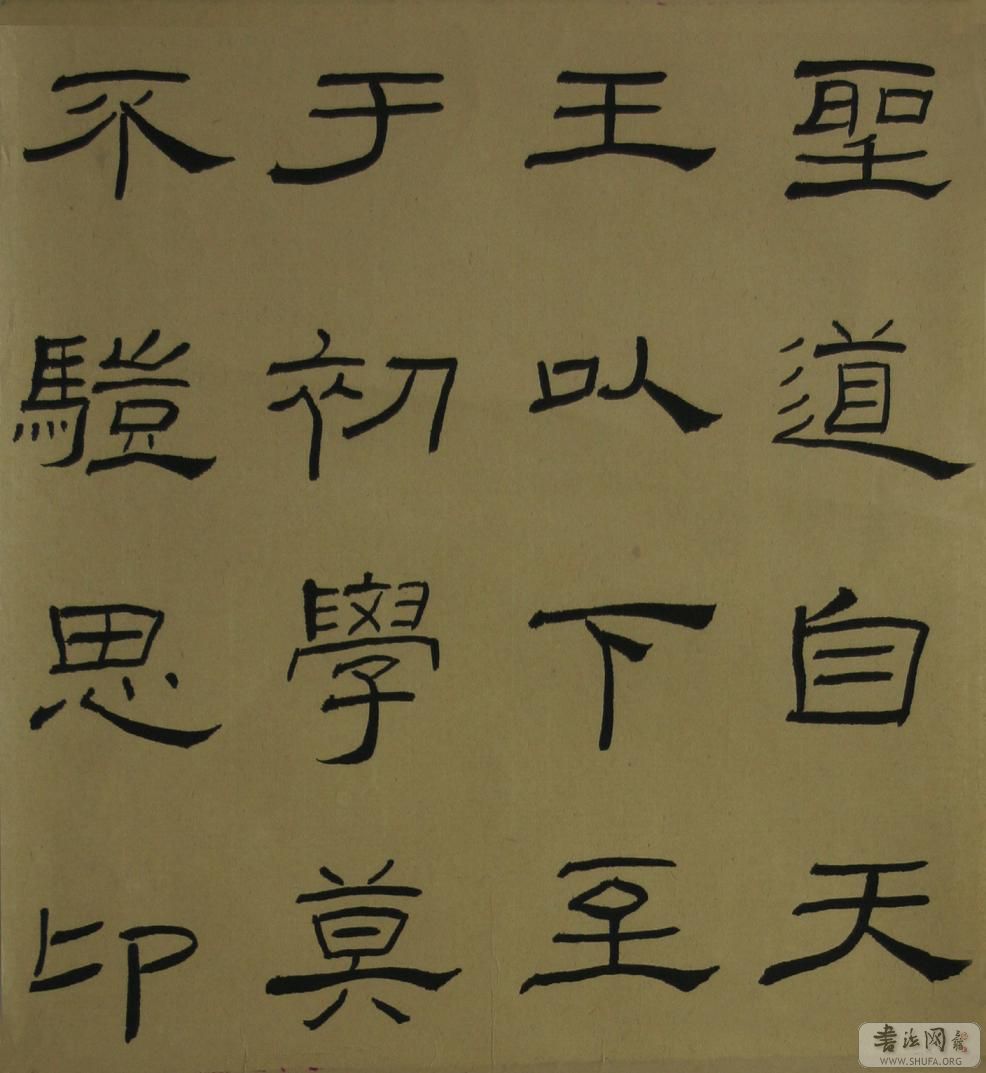 聖道自天
王以下至
于初學莫
不驥思卬
書法网
WWW.SHUFA.ORG